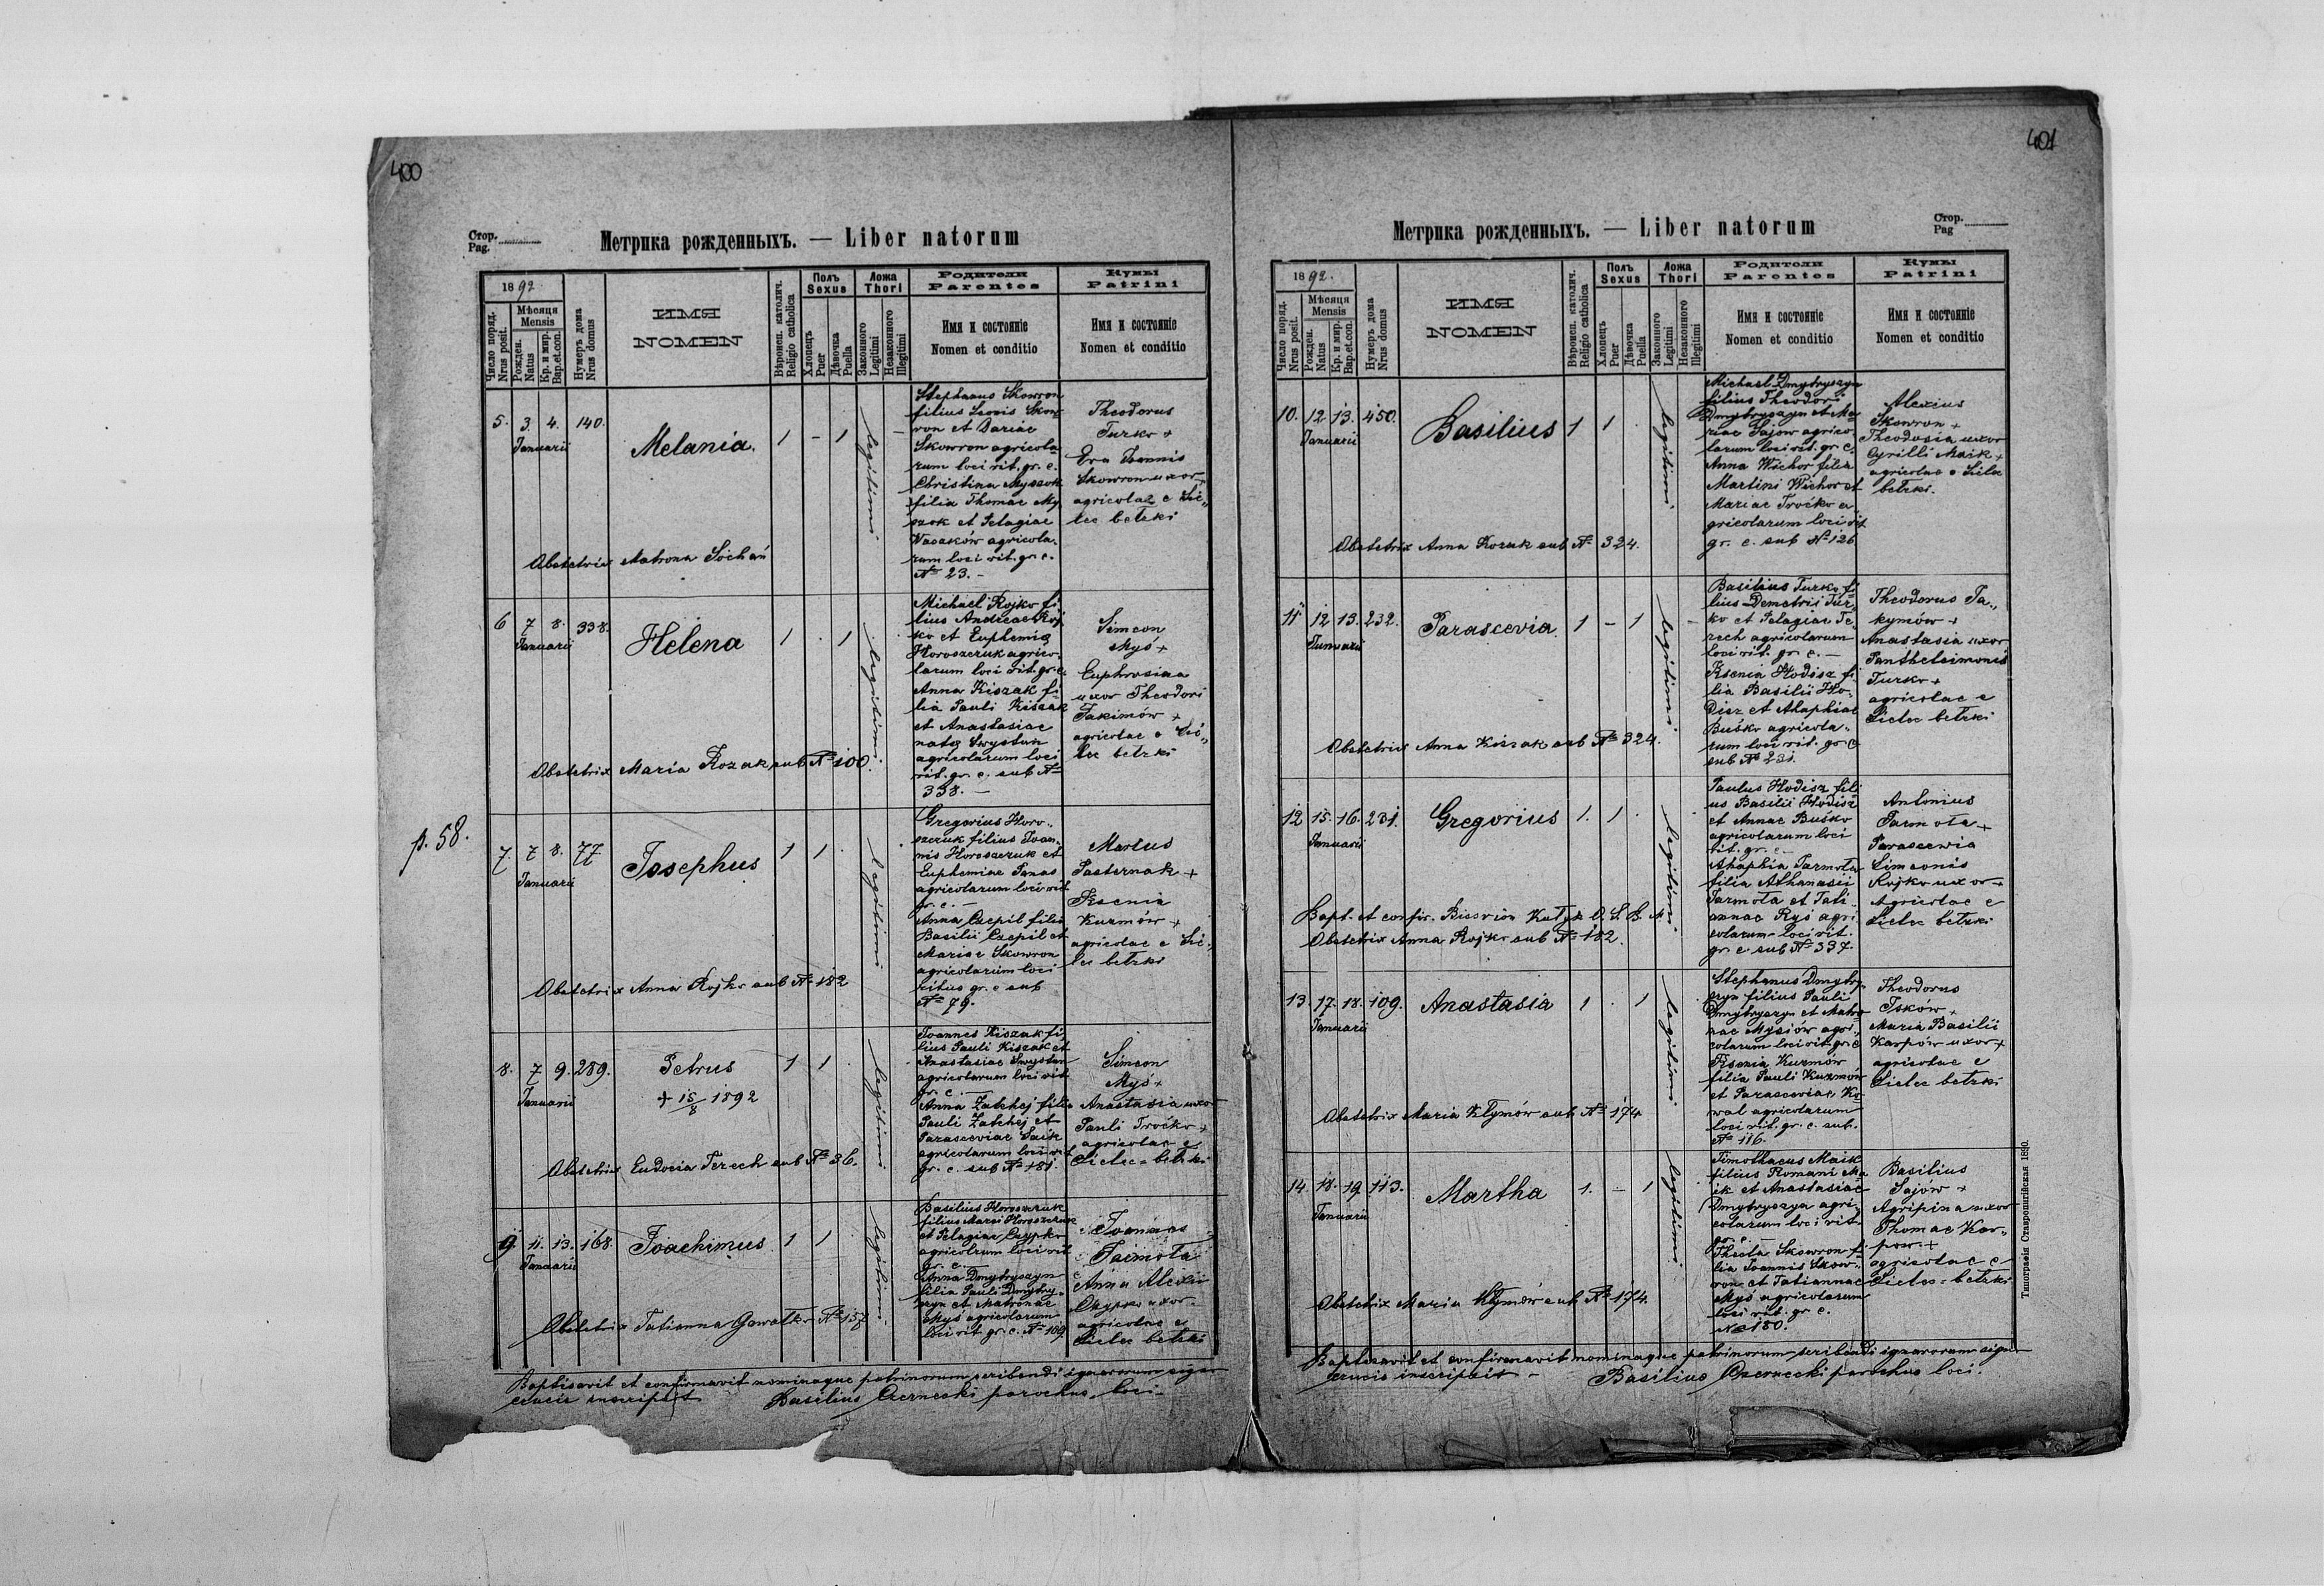 400
Стор.
Pag.
Метрика рожденныхъ. — Liber natorum
1892
Число поряд.
Nrus posit.
Мѣсяця
Mensis
Рожден.
Natus
Кр. и мир.
Bap. et. con.
Нумеръ дома
Nrus domus
ИМЯ
NOMEN
Вѣроисп. католич.
Religio catholica
Полъ
Sexus
Хлопецъ
Puer
Дѣвочка
Puella
Ложа
Thori
Законного
Legitimi
Незаконного
Illegitimi
Родители
Parentes
Имя и состоянiе
Nomen et conditio
Кумы
Patrini
Имя и состоянiе
Nomen et conditio
5. 3. 4. 140.
Januarii
Melania.
1 - 1
legitimi
Stephanus Skowron
filius Leonis Skow
ron et Dariae
Skowron agricola
rum loci rit. gr. c.
Christina Myszok
filia Thomae My
szok et Pelagiae
Wasaków agricola
rum loci rit. gr. c.
№ 23. -
Theodorus
Turko +
Eva Joannis
Skowron uxor
agricolae e Sie„
lec bełzki
Obstetrix Matrona Sochań
6 7 8. 338.
Januarii
Helena
1 . 1
legitimi
Michael Rojko fi
lius Andreae Roj
ko et Euphemia
Horoszczuk agrico
larum loci rit. gr. c.
Anna Kiszak fi
lia Pauli Kiszak
et Anastasiae
nata Swystun
agricolarum loci
rit. gr. c. sub №
338. -
Simeon
Myś +
Euphrosina
uxor Theodori
Jakimów +
agricolae e Sie„
lec bełzki
Obstetrix Maria Kozak sub № 100.
p. 58.
7. 7 8. 77
Januarii
Josephus
1 1 .
legitimi
Gregorius Horo„
szczuk filius Joan„
nis Horoszczuk et
Euphemiae Panas
agricolarum loci rit
gr. c. -
Anna Czepil filia
Basilii Czepil et
Mariae Skowron
agricolarum loci
ritus gr. c sub
№ 79.
Marcus
Pasternak +
Ksenia
Kuzmów +
agricolae e Sie
lec bełzki
Obstetrix Anna Rojko sub № 182
8. 7 9. 289.
Januarii
Petrus
+ 15/8 1892
1 1 .
legitimi
Joannes Kiszak fi
lius Pauli Kiszak et
Anastasiae Swystun
agricolarum loci rit
gr. c. -
Anna Zatchej filia
Pauli Zatchej et
Parasceviae Saik
agricolarum loci rit
gr. c. sub № 181.
Simeon
Myś +
Anastasia uxor
Pauli Troćko +
agricolae e
Sielec = bełzki
Obstetrix Eudocia Terech sub № 36.
9. 11. 13. 168.
Januarii
Joachimus
1 1
legitimi
Basilius Horoszczuk
filius Marci Horoszczuk
et Pelagiae Czypko
agricolrum loci rit
gr. c. -
Anna Dmytryszyn
filia Pauli Dmytry
szyn et Matronae
Myś agricolarum
loci rit. gr. c. № 109
Joannes
Anna Alexii
uxor
agricolae e
Sielec bełzki
Obstetrix Tatianna Gawalko № 157
Baptisavit et confirmavit nominaque patrinorum scribendi ignarorum signo
crucis inscripsit. Basilius Czernecki parochus loci.
401
Стор.
Pag
Метрика рожденныхъ. — Liber natorum
1892.
Число поряд.
Nrus posit.
Мѣсяця
Mensis
Рожден.
Natus
Кр. и мир.
Bap. et. con.
Нумеръ дома
Nrus domus
ИМЯ
NOMEN
Вѣроисп. католич.
Religio catholica
Полъ
Sexus
Хлопецъ
Puer
Дѣвочка
Puella
Ложа
Thori
Законного
Legitimi
Незаконного
Illegitimi
Родители
Parentes
Имя и состоянiе
Nomen et conditio
Кумы
Patrini
Имя и состоянiе
Nomen et conditio
10. 12. 13. 450.
Januarii
Basilius
1 1 .
legitimi
Michael Dmytryszyn
filius Theodori
Dmytryszyn et Ma
riae Sajow agrico
larum loci rit. gr. c.
Anna Wichor filia
Martini Wichor et
Mariae Troćko a
gricolarum loci rit
gr. c. sub № 126
Alexius
Skowron +
Theodosia uxor
Cyrilli Maik +
agricolae e Sielec
bełzki.
Obstetrix Anna Kozak sub № 324.
11 12 13. 232.
Januarii
Parascevia.
1 - 1
legitimi
Basilius Turko fi
lius Demetrii Tur„
ko et Pelagiae Te
rech agricolarum
loci rit. gr. c. -
Ksenia Hodisz fi
lia Basilii Ho„
disz et Ahaphiae
Buśko agricola„
rum loci rit. gr. c
sub № 231.
Theodorus Ja„
kymów +
Anastasia uxor
Pantheleimonis
Turko +
agricolae e
Sielec bełzki
Obstetrix Anna Kiszak sub № 324.
12 15. 16. 231.
Januarii
Gregorius
1. 1 .
legitimi
Paulus Hodisz fili
us Basilii Hodisz
et Annae Buśko
agricolarum loci
rit. gr. c. -
Ahaphia Jarmola
filia Athanasii
Jarmola et Tati„
annae Ryś agri
colarum loci rit.
gr. c sub № 337.
Antonius
Jarmola +
Parascevia
Simeonis
Rojko uxor +
Agricolae e
Sielec bełzki
Bapt. et confir. O. S. B. M
Obstetrix Anna Rojko sub № 182.
13. 17. 18. 109.
Januarii
Anastasia
1 . 1
legitimi
Stephanus Dmytry
szyn filius Pauli
Dmytryszyn et Matro
nae Mysiów agri„
colarum loci rit gr. c
Ksenia Kuzmów
filia Pauli Kuzmów
et Parasceviae Ko
wal agricolarum
loci rit. gr. c. sub.
№ 116.
Theodorus
Iśków +
Maria Basilii
Karpów uxor +
agricolae e
Sielec bełzki
Obstetrix Maria Kłymów sub № 174
14. 18. 19 113.
Januarii
Martha
1. - 1
legitimi
Timothaeus Maik
filius Romani Ma
ik et Anastasiae
Dmytryszyn agri„
colarum loci rit
gr. c. -
Thecla Skowron fi
lia Joannis Skow„
ron et Tatiannae
Myś agricolarum
loci rit. gr c.
№ 180.
Basilius
Sajów +
Agripina uxor
Thomae Kar„
pow. +
agricolae e
Sielec = bełzki
Obstetrix Maria Kłymów sub № 174.
Baptisavit et confirmavit nominaque patrinorum scribendi ignarorum signo
crucis inscripsit - Basilius Czernecki parochus loci.
Типографія Ставропигійская 1890.